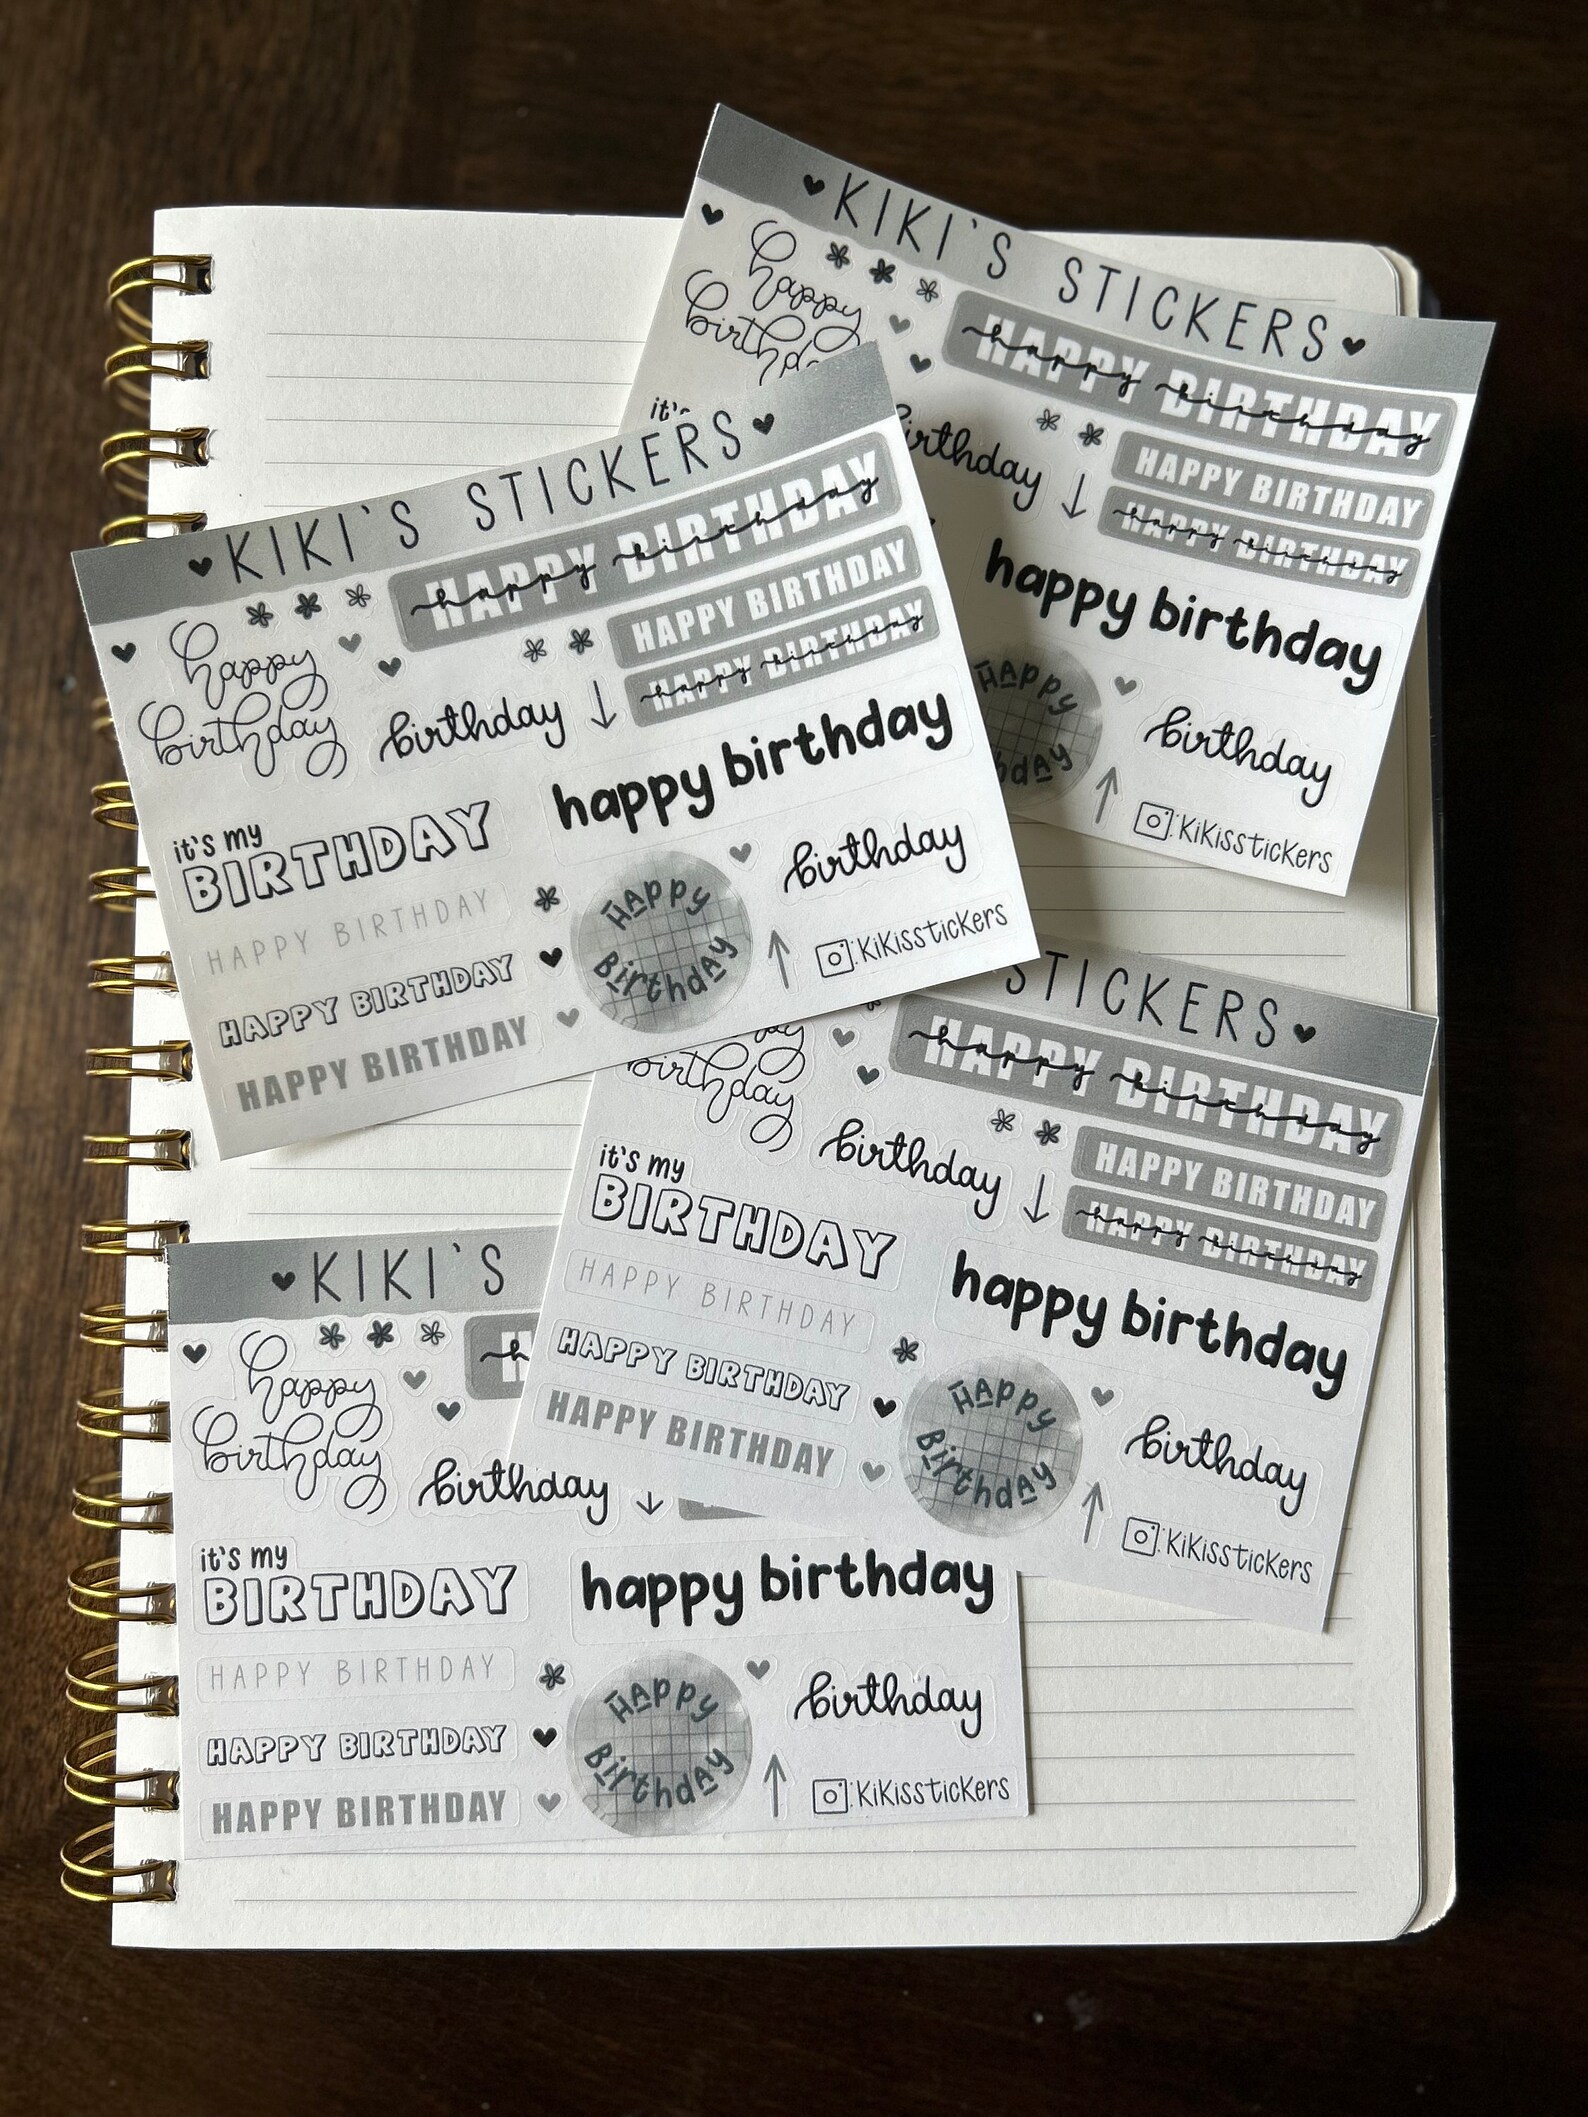 ♥KIKI'S STICKERS♥
happy
birthday
it's
HAPPY BIRTHDAY
happy birthday
birthday
HAPPY BIRTHDAY
HAPPY BIRTHDAY
happy birthday
happy birthday
HAPPY
birthday
KiKisstickers
♥KIKI'S STICKERS♥
happy
birthday
HAPPY BIRTHDAY
happy birthday
HAPPY BIRTHDAY
HAPPY BIRTHDAY
happy birthday
birthday
happy birthday
it's my
BIRTHDAY
HAPPY BIRTHDAY
HAPPY BIRTHDAY
HAPPY BIRTHDAY
HAppy
BirthdAy
birthday
:KiKisstickers
STICKERS♥
birthday
HAPPY BIRTHDAY
happy birthday
HAPPY BIRTHDAY
HAPPY BIRTHDAY
happy birthday
birthday
it's my
BIRTHDAY
happy birthday
HAPPY BIRTHDAY
HAPPY BIRTHDAY
HAPPY BIRTHDAY
HAppy
BirthdAy
birthday
:KiKisstickers
♥KIKI'S
happy
birthday
birthday
it's my
BIRTHDAY
happy birthday
HAPPY BIRTHDAY
HAPPY BIRTHDAY
HAPPY BIRTHDAY
HAppy
BirthdAy
birthday
:KiKisstickers